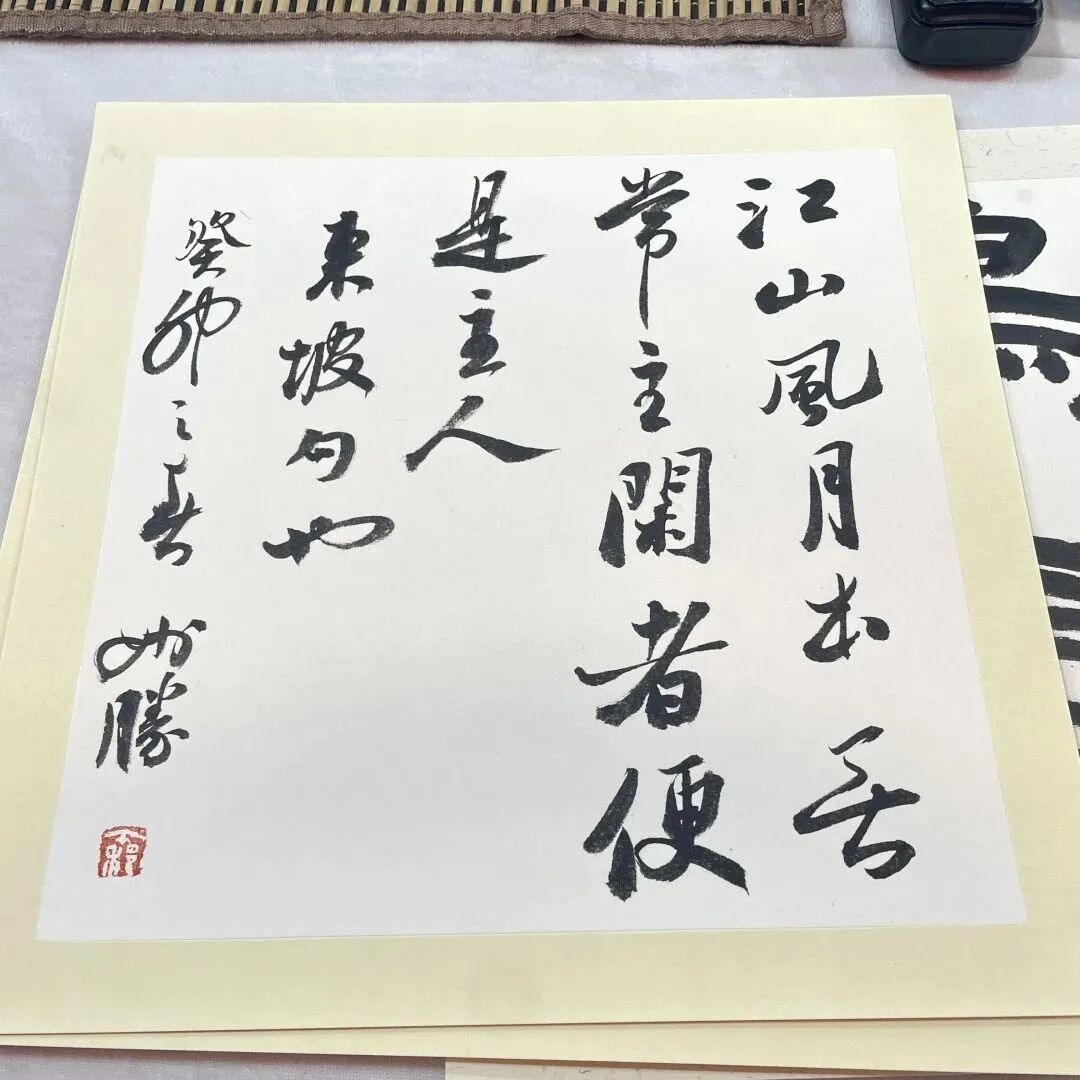 江山風月本无
常主閑者便
是主人
東坡句也
癸卯之春
勝